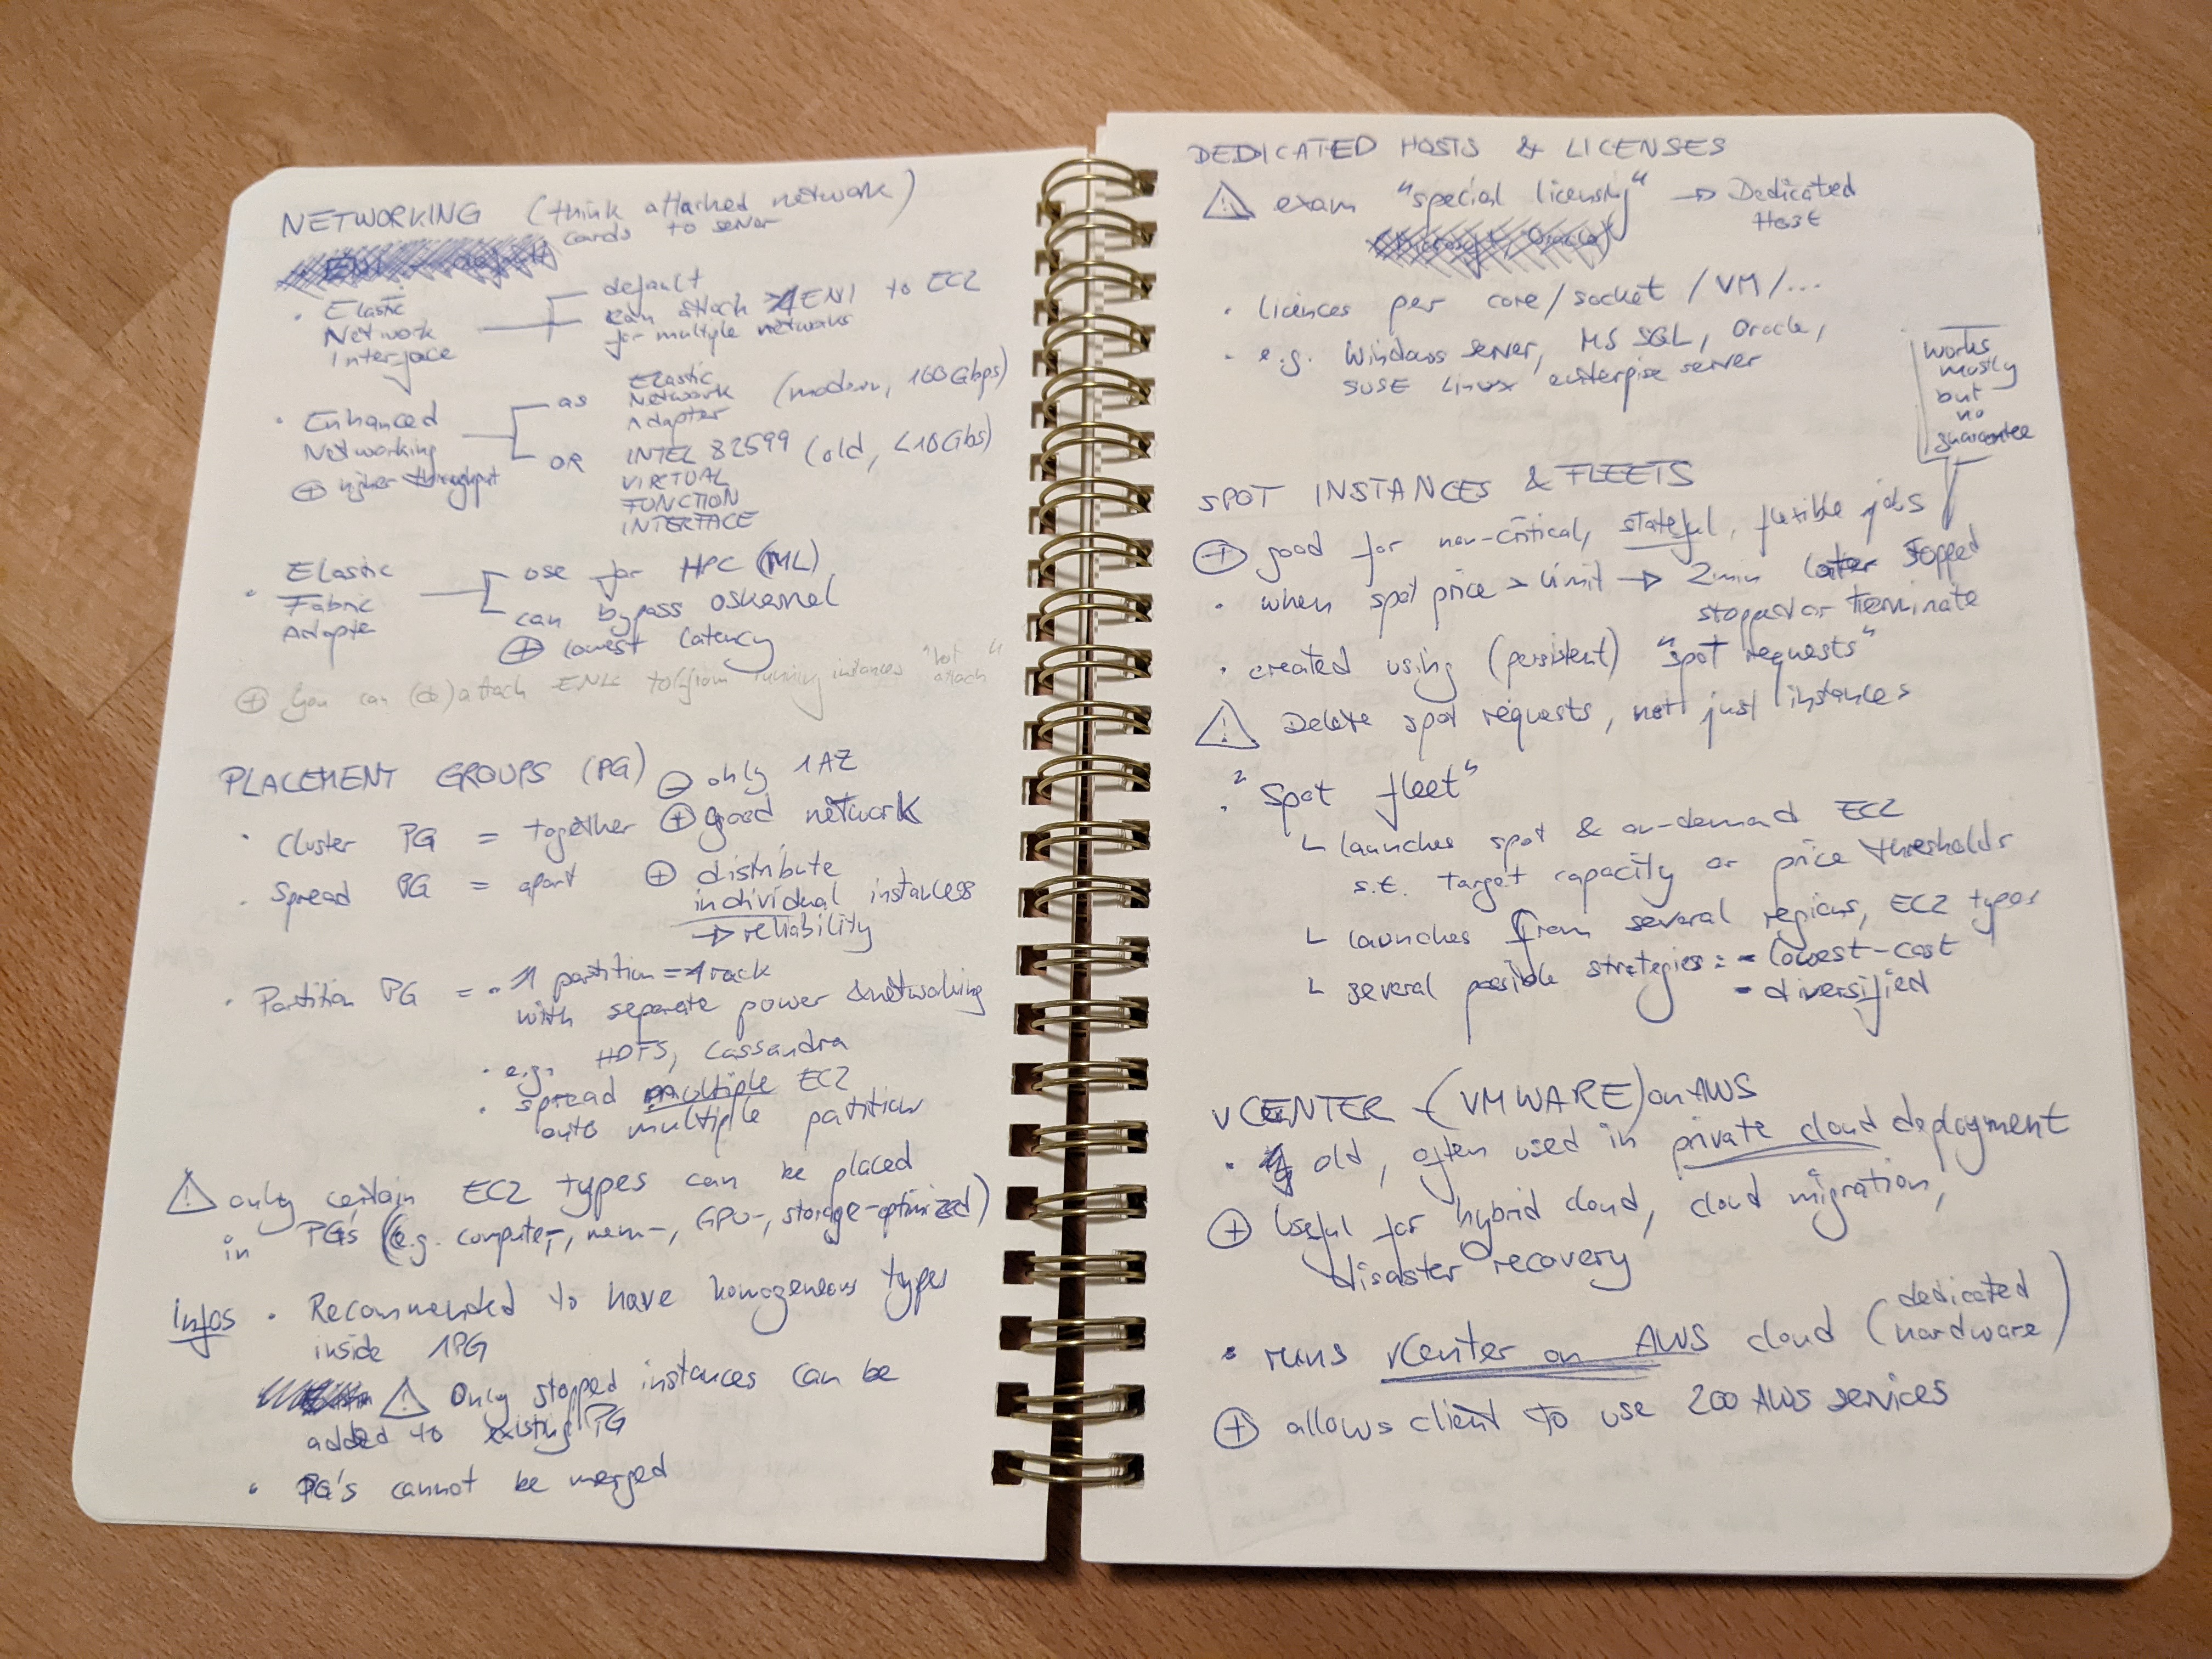 NETWORKING (think attached network)
cards to server
· Elastic
Network
Interface
default
can attach >1 ENI to EC2
for multiple networks
· Enhanced
Networking
⊕ higher throughput
as
Elastic
Network
Adapter
(modern, 100Gbps)
OR
INTEL 82599 (old, <10Gbs)
VIRTUAL
FUNCTION
INTERFACE
· Elastic
Fabric
Adapter
use for HPC (ML)
can bypass OSKernel
⊕ lowest latency
⊕ You can (de)attach ENIs to/from running instances "hot
attach"
PLACEMENT GROUPS (PG)
⊖ only 1 AZ
· Cluster PG = together ⊕ good network
· Spread PG = apart ⊕ distribute
individual instances
→ reliability
· Partition PG = · 1 partition = 1 rack
with separate power & networking
· e.g. HDFS, Cassandra
· spread multiple EC2
onto multiple partition
⚠ only certain EC2 types can be placed
in PG's (e.g. compute-, mem-, GPU-, storage-optimized)
Infos · Recommended to have homogeneous types
inside 1PG
⚠ Only stopped instances can be
added to existing PG
· PG's cannot be merged
DEDICATED HOSTS & LICENSES
⚠ exam "special licensing" → Dedicated
Host
· licences per core/socket/VM/...
· e.g. Windows server, MS SQL, Oracle,
SUSE Linux enterpise server
works
mostly
but
no
guarantee
SPOT INSTANCES & FLEETS
⊕ good for non-critical, stateful, flexible jobs
· when spot price > limit → 2min later
stopped or terminate
· created using (persistent) "spot requests"
⚠ Delete spot requests, not just instances
· "Spot fleet"
└ launches spot & on-demand EC2
s.t. target capacity or price thresholds
└ launches from several regions, EC2 types
└ several possible strategies: - lowest-cost
- diversified
VCENTER (VMWARE) on AWS
· old, often used in private cloud deployment
⊕ Useful for hybrid cloud, cloud migration,
disaster recovery
· runs vCenter on AWS cloud (dedicated
hardware)
⊕ allows client to use 200 AWS services